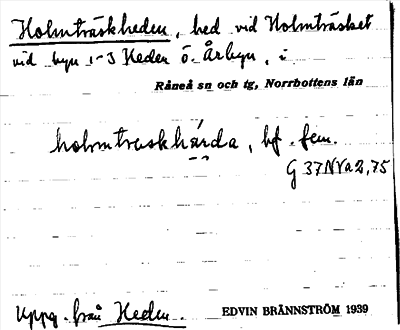 Holmträskheden, hed vid Holmträsket
vid byn 1-3 Heden ö. Årbyn, i
Råneå sn och tg, Norrbottens län
holmtraskhárda, bf. fem.
G 37 N V a 2,75
Uppg. från Heden.
EDVIN BRÄNNSTRÖM 1939